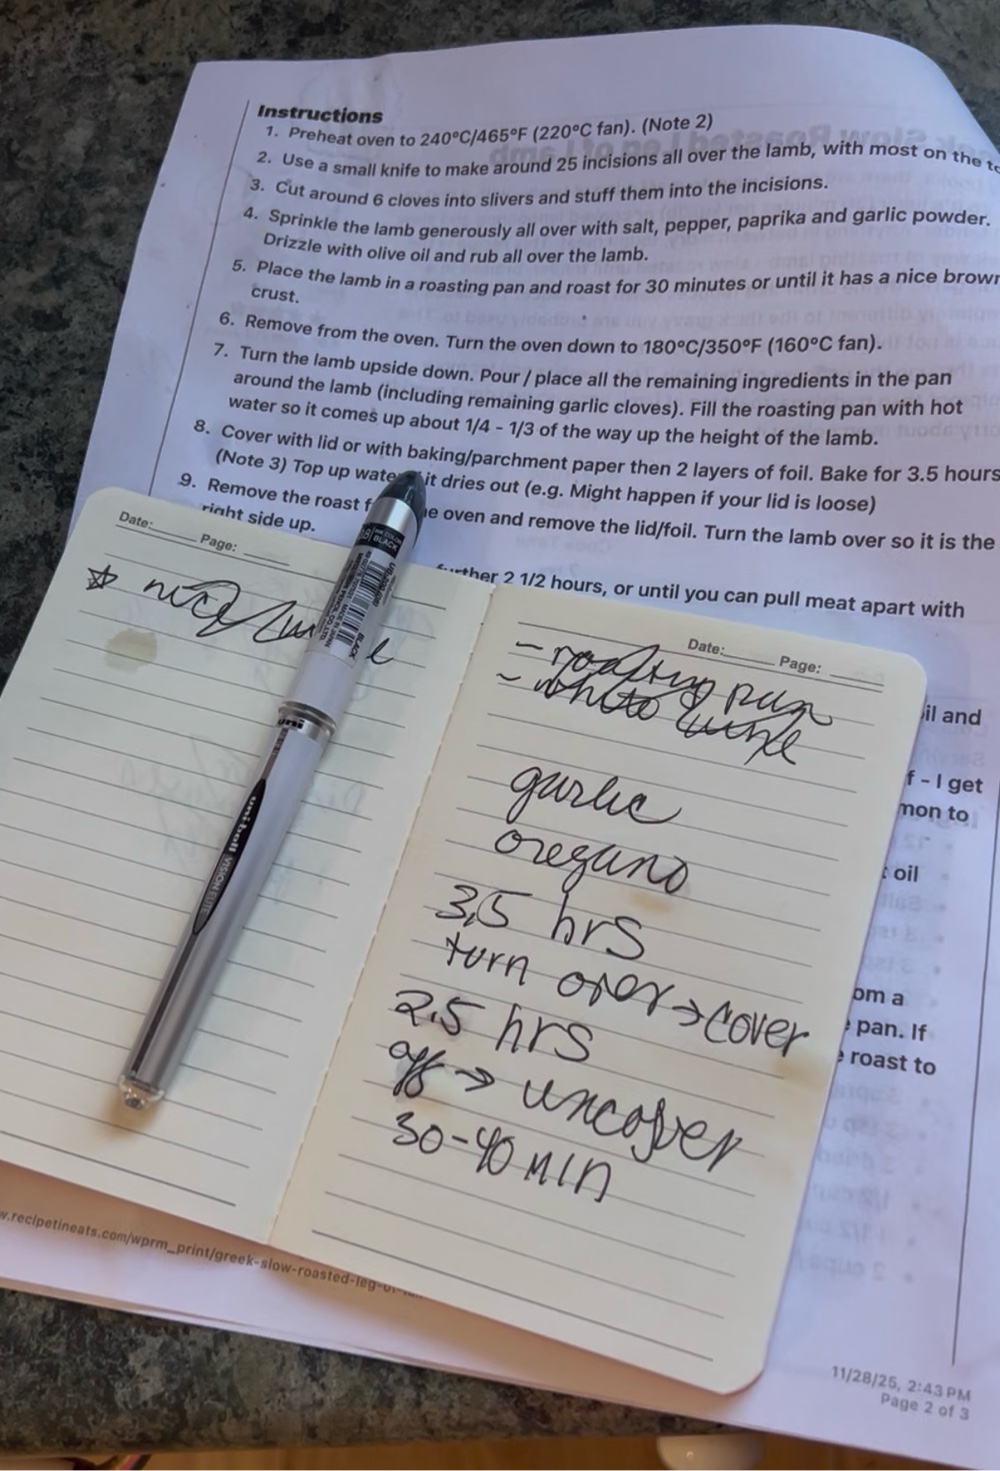 Instructions
1. Preheat oven to 240°C/465°F (220°C fan). (Note 2)
2. Use a small knife to make around 25 incisions all over the lamb, with most on the
3. Cut around 6 cloves into slivers and stuff them into the incisions.
4. Sprinkle the lamb generously all over with salt, pepper, paprika and garlic powder.
Drizzle with olive oil and rub all over the lamb.
5. Place the lamb in a roasting pan and roast for 30 minutes or until it has a nice brown
crust.
6. Remove from the oven. Turn the oven down to 180°C/350°F (160°C fan).
7. Turn the lamb upside down. Pour / place all the remaining ingredients in the pan
around the lamb (including remaining garlic cloves). Fill the roasting pan with hot
water so it comes up about 1/4 - 1/3 of the way up the height of the lamb.
8. Cover with lid or with baking/parchment paper then 2 layers of foil. Bake for 3.5 hours
(Note 3) Top up water it dries out (e.g. Might happen if your lid is loose)
9. Remove the roast oven and remove the lid/foil. Turn the lamb over so it is the
right side up.
further 2 1/2 hours, or until you can pull meat apart with
oil and
f - I get
oil
om a
pan. If
roast to
Date: Page:
nice
uni
BLACK
uni-ball VISION ELITE
Date: Page:
- roasting pan
- white wine
garlic
oregano
3.5 hrs
turn over → cover
2.5 hrs
off → uncover
30-40 MIN
w.recipetineats.com/wprm_print/greek-slow-roasted-leg-of-
11/28/25, 2:43 PM
Page 2 of 3